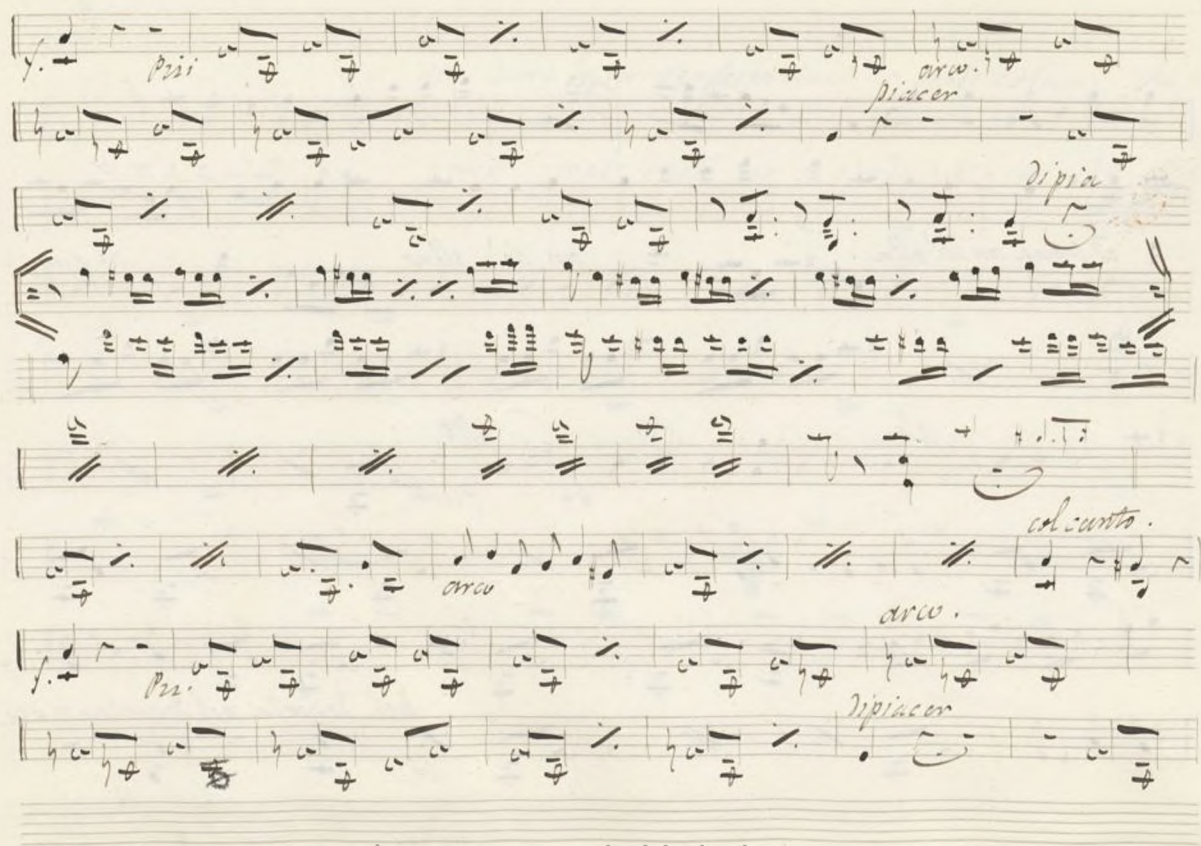 f. Pizi arco.
piacer
dipia
col canto.
arco
arco.
f. Pizi.
dipiacer